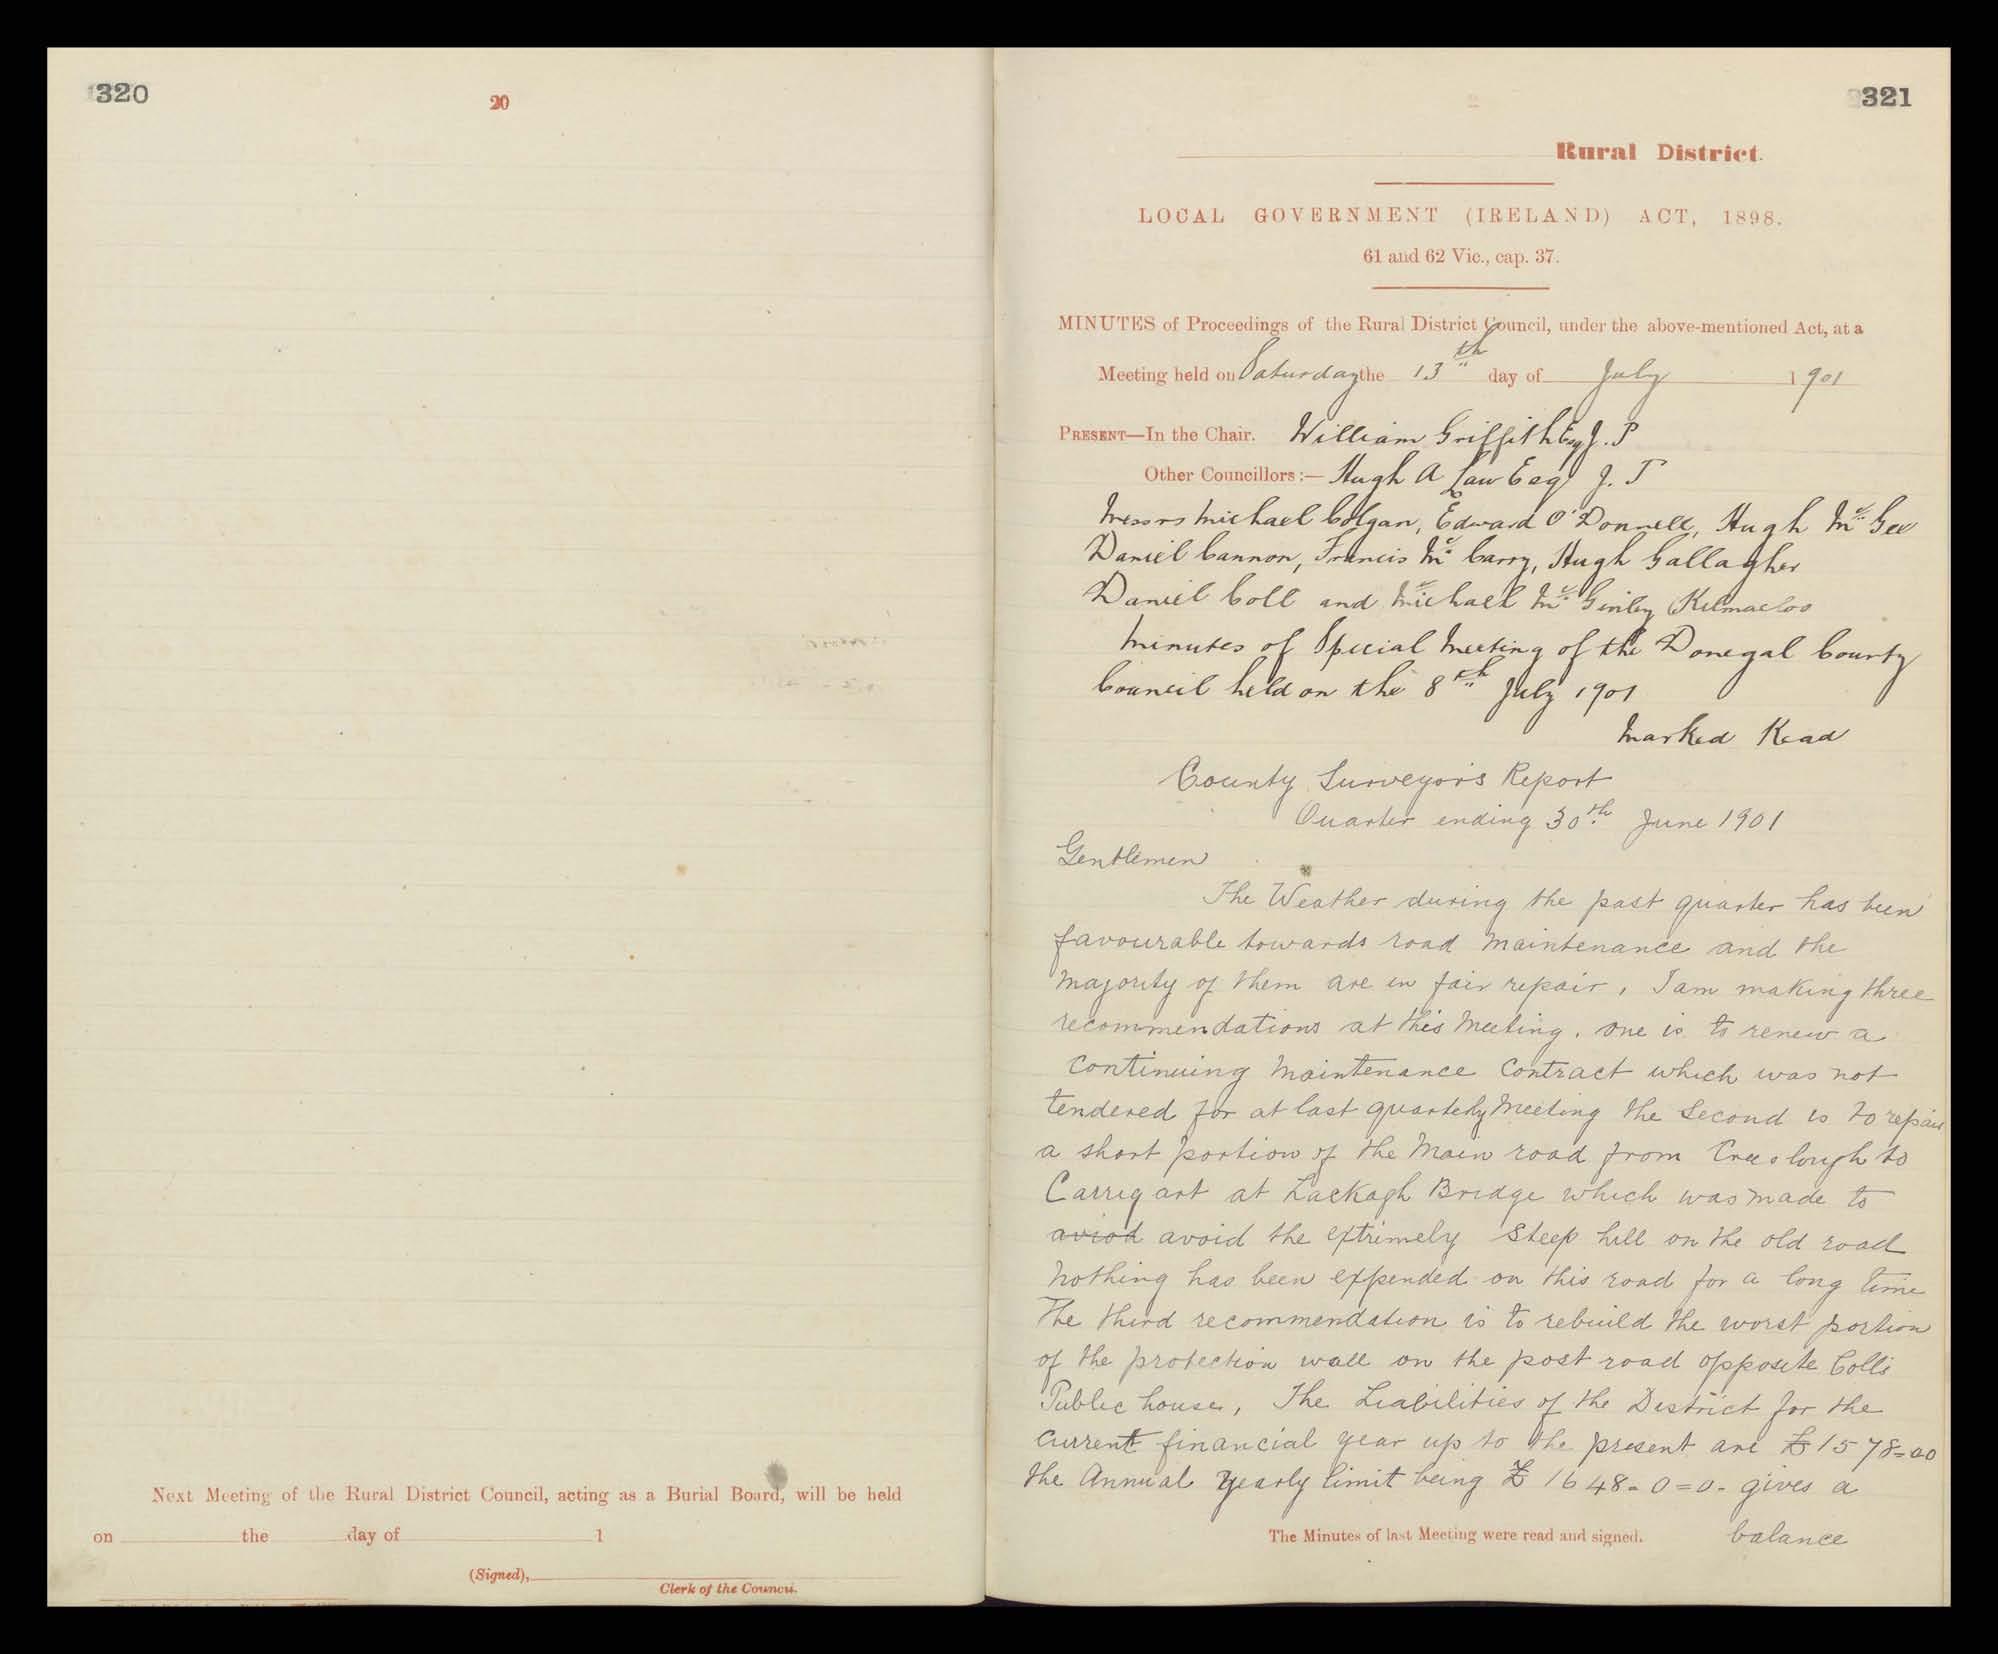 320
20
Next Meeting of the Rural District Council, acting as a Burial Board, will be held
on the day of 1
(Signed),
Clerk of the Council.
321
Rural District.
LOCAL GOVERNMENT (IRELAND) ACT, 1898.
61 and 62 Vic., cap. 37.
MINUTES of Proceedings of the Rural District Council, under the above-mentioned Act, at a
Meeting held on Saturday the 13th day of July 1901
PRESENT—In the Chair. William Griffith Esq J. P
Other Councillors :— Hugh A Law Esq J. P
Messrs Michael Colgan, Edward O'Donnell, Hugh McGee
Daniel Cannon, Francis McCarry, Hugh Gallagher
Daniel Coll and Michael McGinley (Kilmacloo
Minutes of Special Meeting of the Donegal County
Council held on the 8th July 1901
Marked Read
County Surveyor's Report
Quarter ending 30th June 1901
Gentlemen
The Weather during the past quarter has been
favourable towards road maintenance and the
majority of them are in fair repair, I am making three
recommendations at this Meeting. one is to renew a
continuing Maintenance Contract which was not
tendered for at last quarterly Meeting the Second is to repair
a short portion of the Main road from Creeslough to
Carrigart at Lackagh Bridge which was made to
aviod avoid the extrimely steep hill on the old road
Nothing has been expended on this road for a long time
The third recommendation is to rebuild the worst portion
of the protection wall on the post road opposite Colls
Public house, The Liabilities of the District for the
current financial year up to the present are £1578=00
the Annual Yearly limit being £1648-0=0- gives a
The Minutes of last Meeting were read and signed. balance